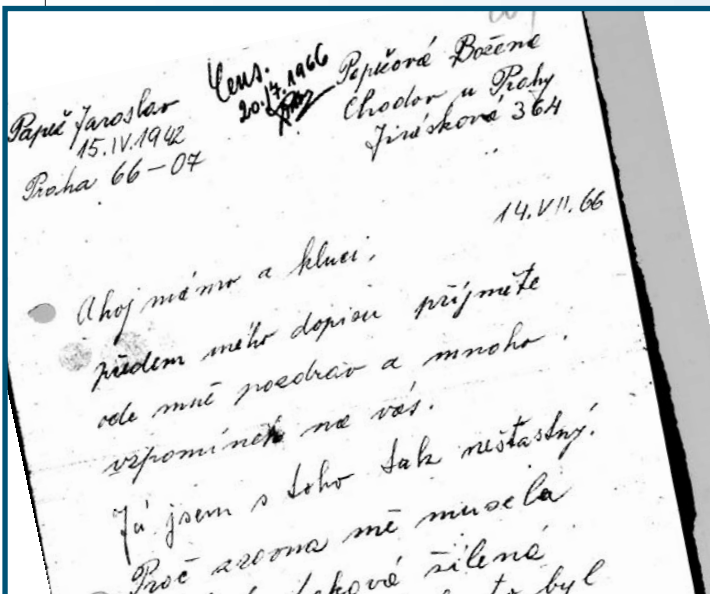 Papež Jaroslav
15.IV.1942
Praha 66-07
Cens.
20./7.1966
Božena
Chodov u Prahy
Jiráskova 364
14.VII.66
Ahoj mámo a kluci,
předem mého dopisu příjměte
ode mně pozdrav a mnoho
vzpomínek na vás.
Já jsem s toho tak nešťastný.
Proč zrovna mě musela
taková šílená
byl